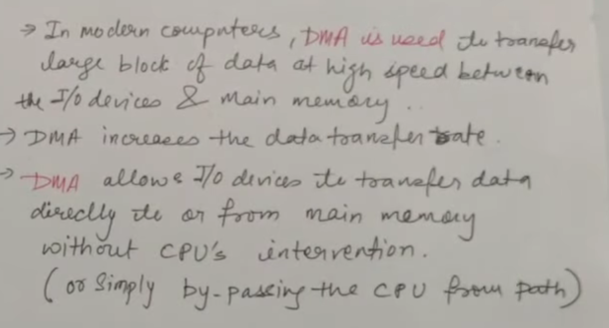 → In modern computers, DMA is used to transfer
large block of data at high speed between
the I/O devices & main memory..
→ DMA increases the data transfer rate.
→ DMA allows I/O devices to transfer data
directly to or from main memory
without CPU's intervention.
(or Simply by-passing the CPU from path)